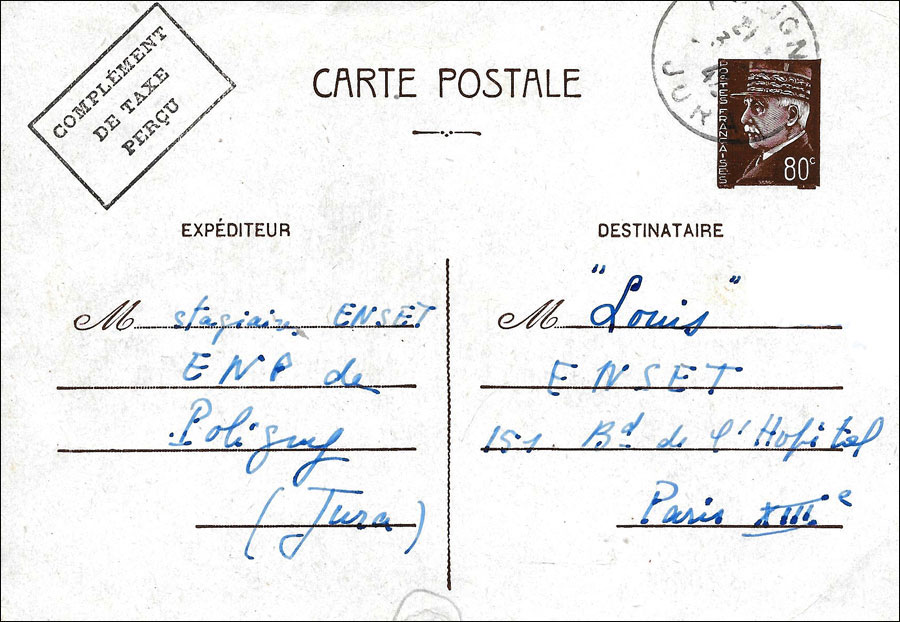 COMPLÉMENT
DE TAXE
PERÇU
CARTE POSTALE
JURA
POSTES FRANÇAISES
80c
EXPÉDITEUR
M stagiaire ENSET
ENP de
Poligny
(Jura)
DESTINATAIRE
M "Louis"
ENSET
151 Bd de l'Hopital
Paris XIIIe